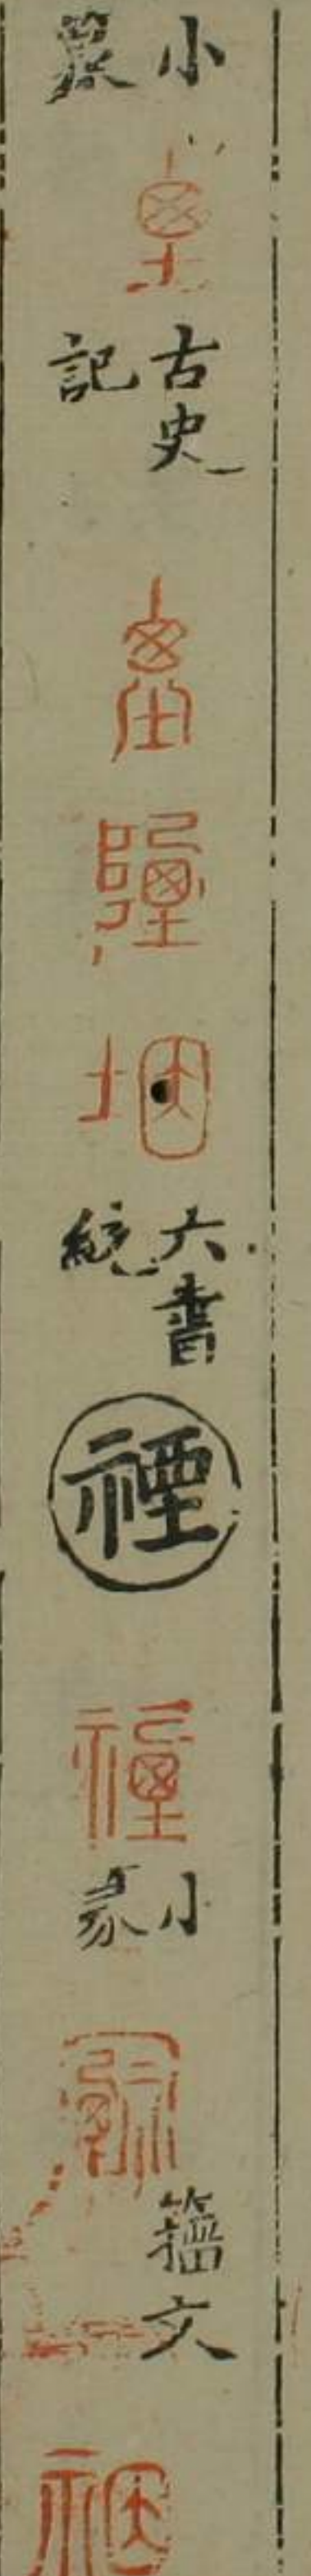 小篆
垔
古史記
陻
六書統
禋
禋
小篆
籀文